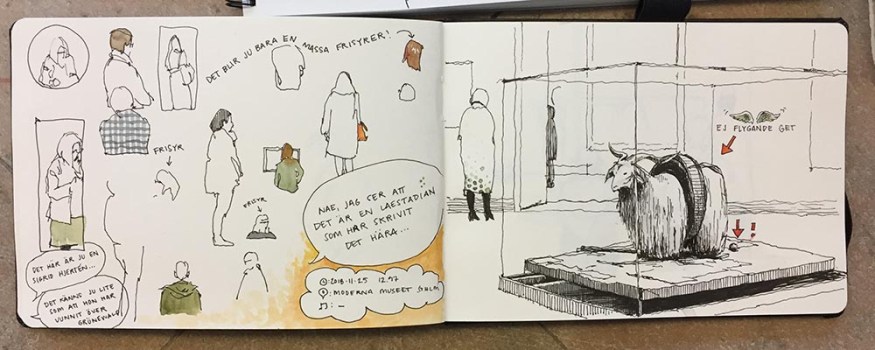 DET BLIR JU BARA EN MASSA FRISYRER!
FRISYR
FRISYR
NAE, JAG SER ATT
DET ÄR EN LAESTADIAN
SOM HAR SKRIVIT
DET HÄRA...
DET HÄR ÄR JU EN
SIGRID HJERTÉN...
DET KÄNNS JU LITE
SOM ATT HON HAR
VUNNIT ÖVER
GRÜNEWALD
: 2018-11-25 12.57
: MODERNA MUSEET, SHOLM
: –
EJ FLYGANDE GET
!